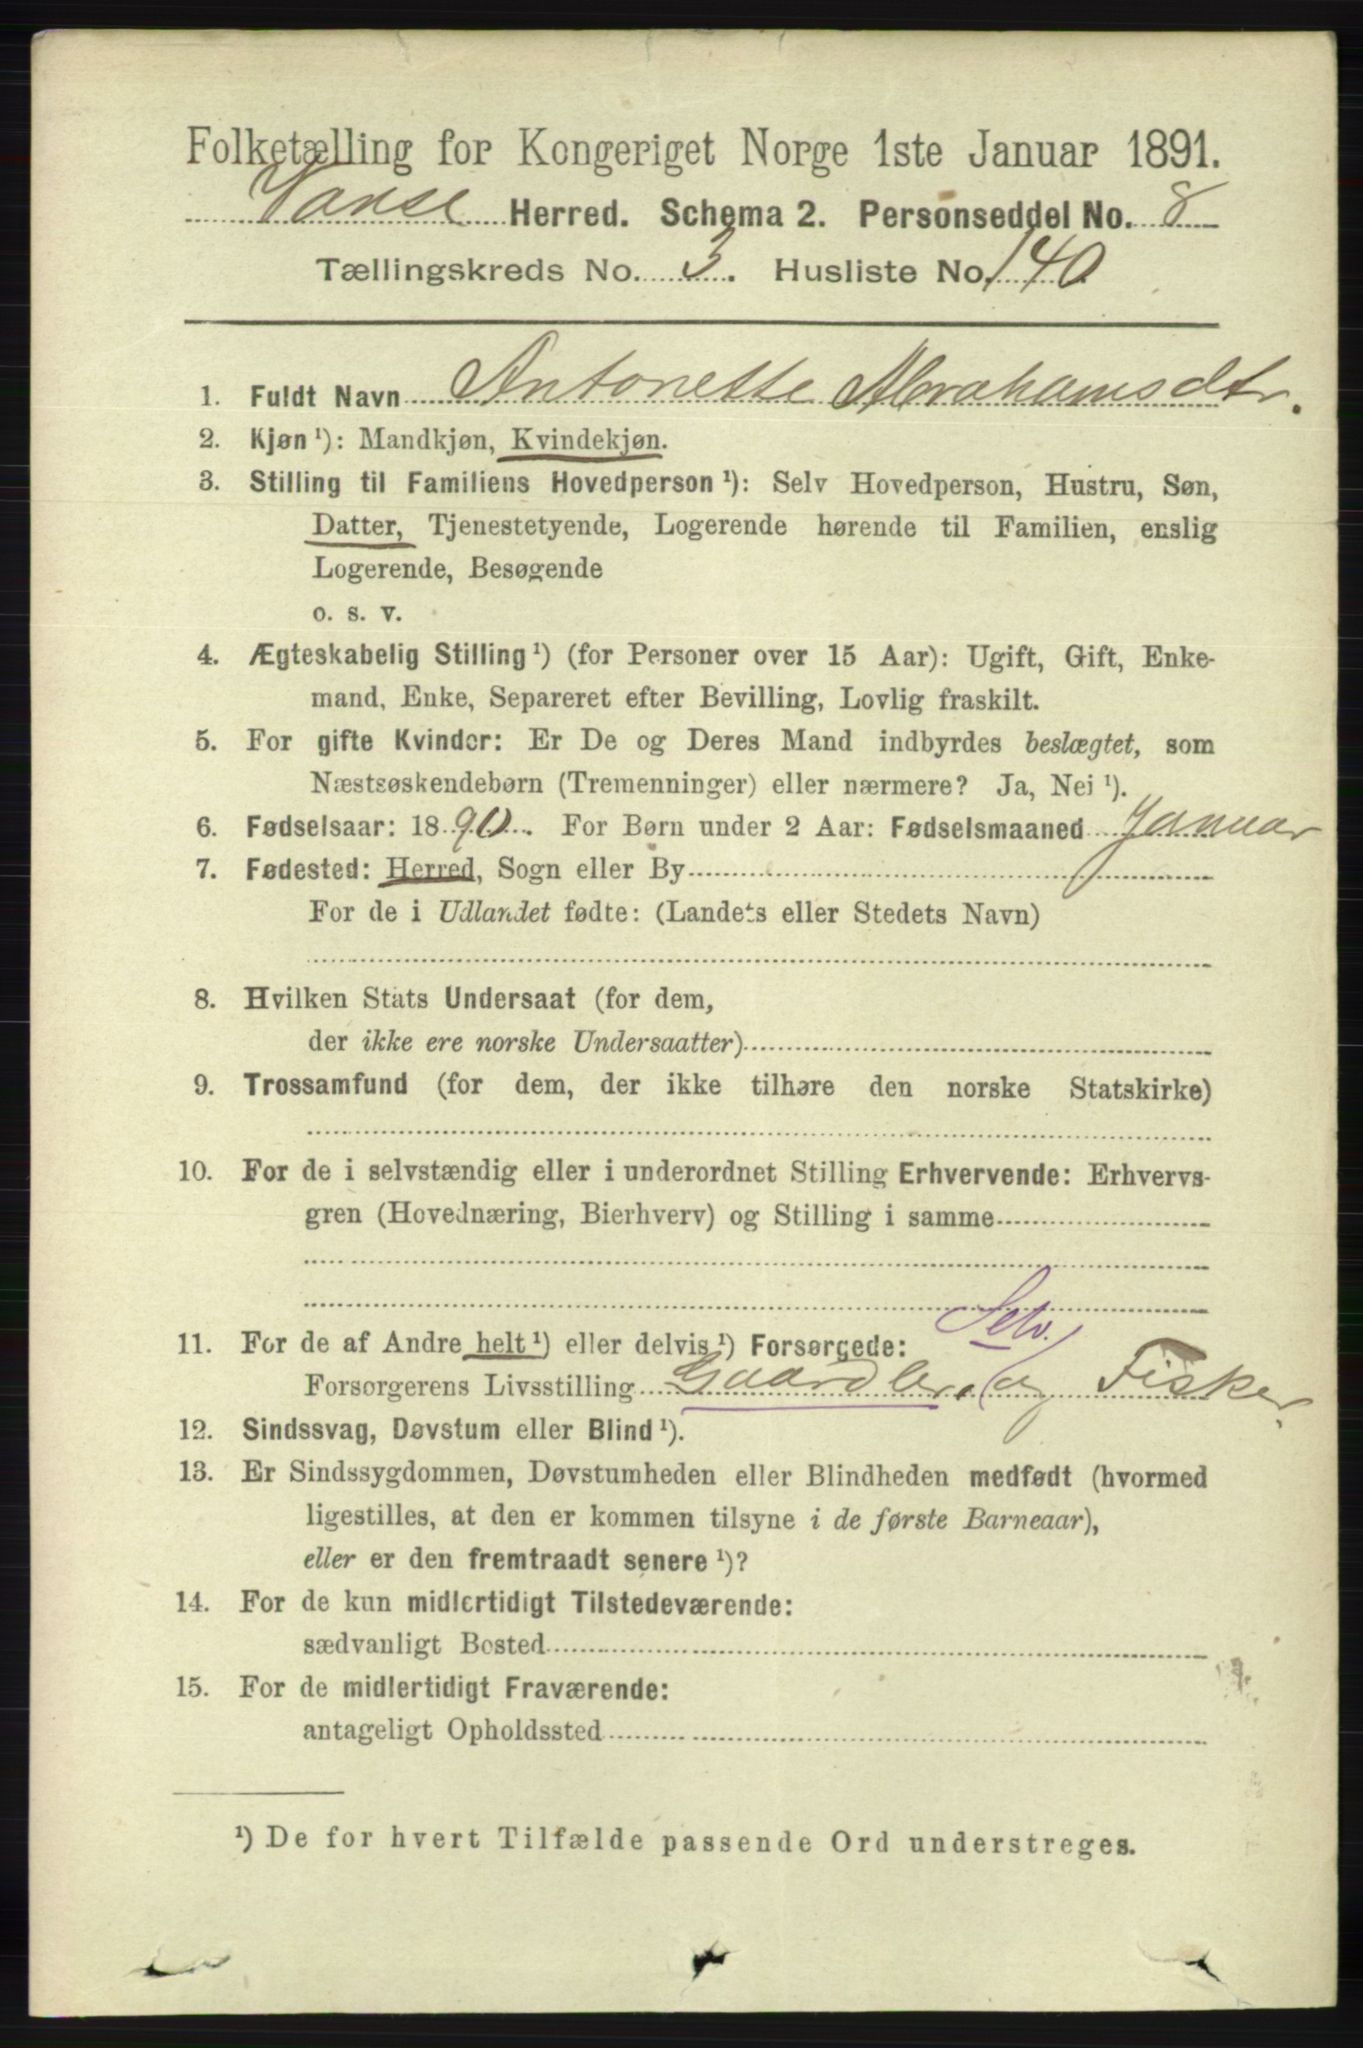 Folketælling for Kongeriget Norge 1ste Januar 1891.
Vanse Herred. Schema 2. Personseddel No. 8
Tællingskreds No. 3. Husliste No. 140
1. Fuldt Navn Antonette Abrahamsdtr.
2. Kjøn ¹): Mandkjøn, Kvindekjøn.
3. Stilling til Familiens Hovedperson ¹): Selv Hovedperson, Hustru, Søn,
Datter, Tjenestetyende, Logerende hørende til Familien, enslig
Logerende, Besøgende
o. s. v.
4. Ægteskabelig Stilling ¹) (for Personer over 15 Aar): Ugift, Gift, Enke-
mand, Enke, Separeret efter Bevilling, Lovlig fraskilt.
5. For gifte Kvinder: Er De og Deres Mand indbyrdes beslægtet, som
Næstsøskendebørn (Tremenninger) eller nærmere? Ja, Nei ¹).
6. Fødselsaar: 1890. For Børn under 2 Aar: Fødselsmaaned Januar
7. Fødested: Herred, Sogn eller By
For de i Udlandet fødte: (Landets eller Stedets Navn)
8. Hvilken Stats Undersaat (for dem,
der ikke ere norske Undersaatter)
9. Trossamfund (for dem, der ikke tilhøre den norske Statskirke)
10. For de i selvstændig eller i underordnet Stilling Erhvervende: Erhvervs-
gren (Hovednæring, Bierhverv) og Stilling i samme
Selv.
11. For de af Andre helt ¹) eller delvis ¹) Forsørgede:
Forsørgerens Livsstilling Gaardbr. og Fisker.
12. Sindssvag, Døvstum eller Blind ¹).
13. Er Sindssygdommen, Døvstumheden eller Blindheden medfødt (hvormed
ligestilles, at den er kommen tilsyne i de første Barneaar),
eller er den fremtraadt senere ¹)?
14. For de kun midlertidigt Tilstedeværende:
sædvanligt Bosted
15. For de midlertidigt Fraværende:
antageligt Opholdssted
¹) De for hvert Tilfælde passende Ord understreges.